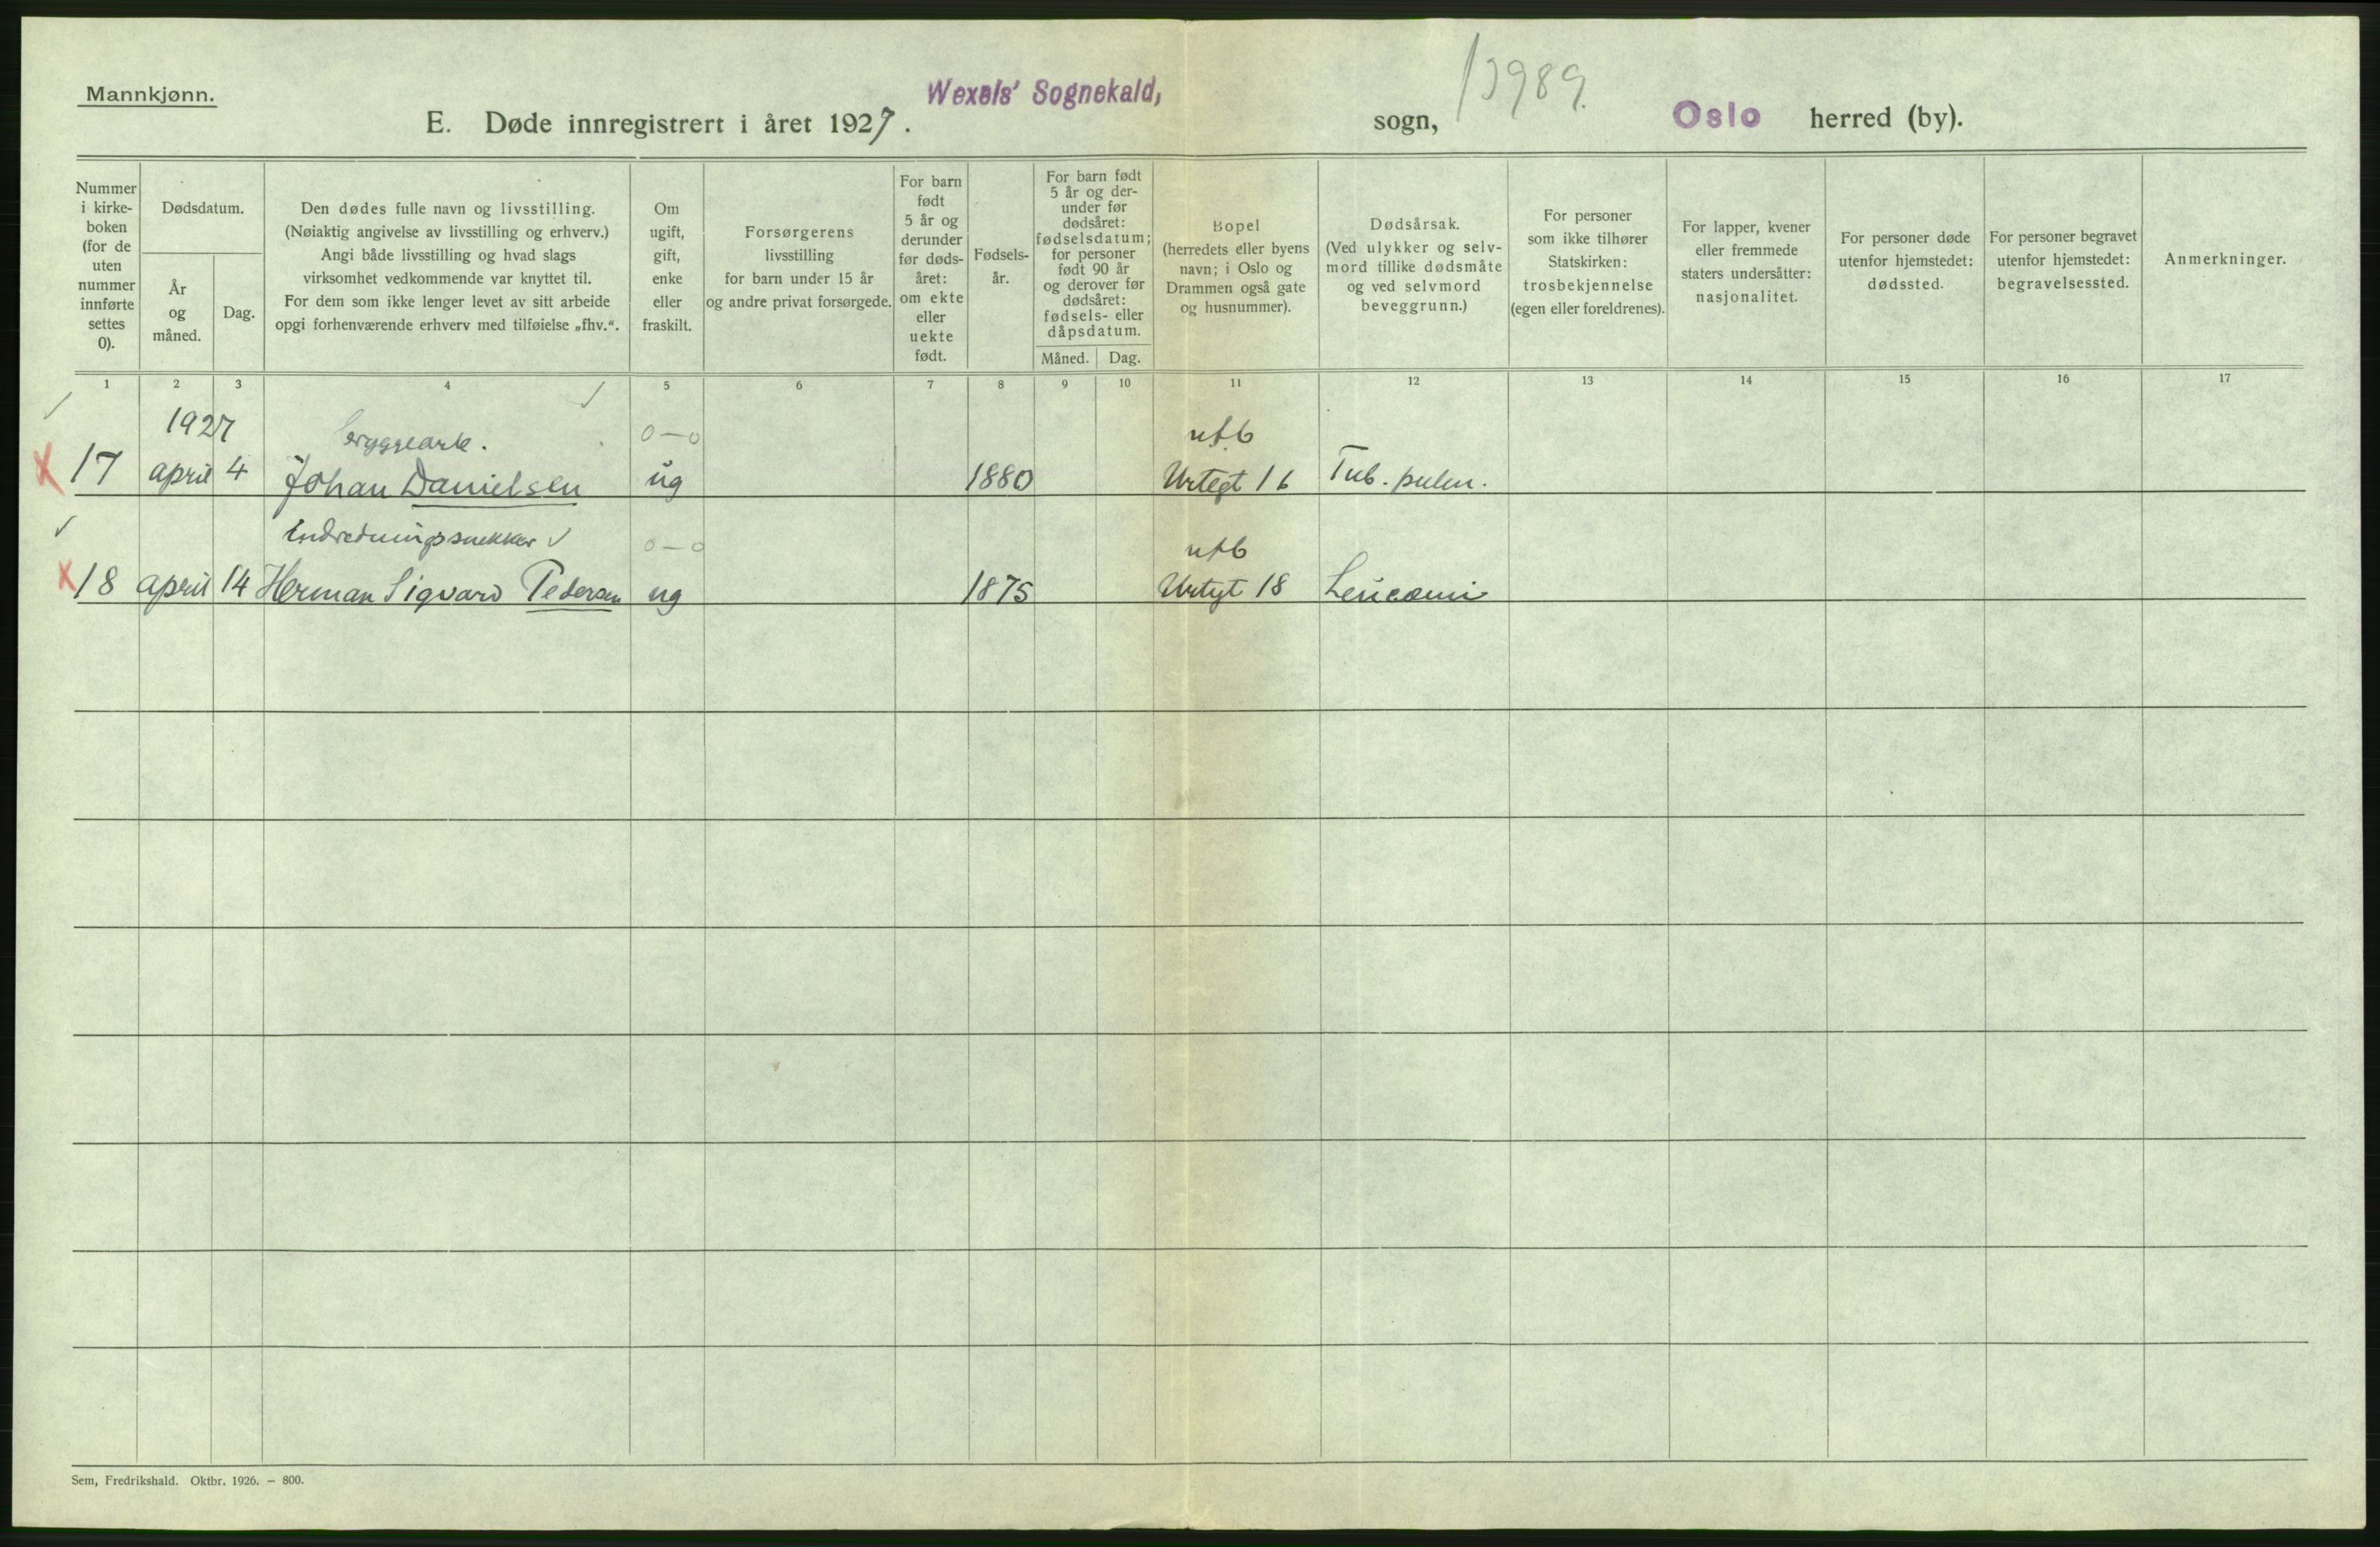 Mannkjønn.
E. Døde innregistrert i året 1927.
Wexels' Sognekald,
sogn,
13989.
Oslo herred (by).
Nummer
i kirke-
boken
(for de
uten
nummer
innførte
settes
0).
Dødsdatum.
År
og
måned.
Dag.
Den dødes fulle navn og livsstilling.
(Nøiaktig angivelse av livsstilling og erhverv.)
Angi både livsstilling og hvad slags
virksomhet vedkommende var knyttet til.
For dem som ikke lenger levet av sitt arbeide
opgi forhenværende erhverv med tilføielse „fhv.“.
Om
ugift,
gift,
enke
eller
fraskilt.
Forsørgerens
livsstilling
for barn under 15 år
og andre privat forsørgede.
For barn
født
5 år og
derunder
før døds-
året:
om ekte
eller
uekte
født.
Fødsels-
år.
For barn født
5 år og der-
under før
dødsåret:
fødselsdatum;
for personer
født 90 år
og derover før
dødsåret:
fødsels- eller
dåpsdatum.
Måned. Dag.
Bopel
(herredets eller byens
navn; i Oslo og
Drammen også gate
og husnummer).
Dødsårsak.
(Ved ulykker og selv-
mord tillike dødsmåte
og ved selvmord
beveggrunn.)
For personer
som ikke tilhører
Statskirken:
trosbekjennelse
(egen eller foreldrenes).
For lapper, kvener
eller fremmede
staters undersåtter:
nasjonalitet.
For personer døde
utenfor hjemstedet:
dødssted.
For personer begravet
utenfor hjemstedet:
begravelsessted.
Anmerkninger.
1 2 3 4 5 6 7 8 9 10 11 12 13 14 15 16 17
1927 bryggearb. 0—0
17 april 4 Johan Danielsen ug 1880 Urtegt 16 Tub. pulm.
Indredningssnekker 0—0
18 april 14 Herman Sigvard Pedersen ug 1875 Urtgt 18 Leucæmi
Sem, Fredrikshald. Oktbr. 1926. — 800.